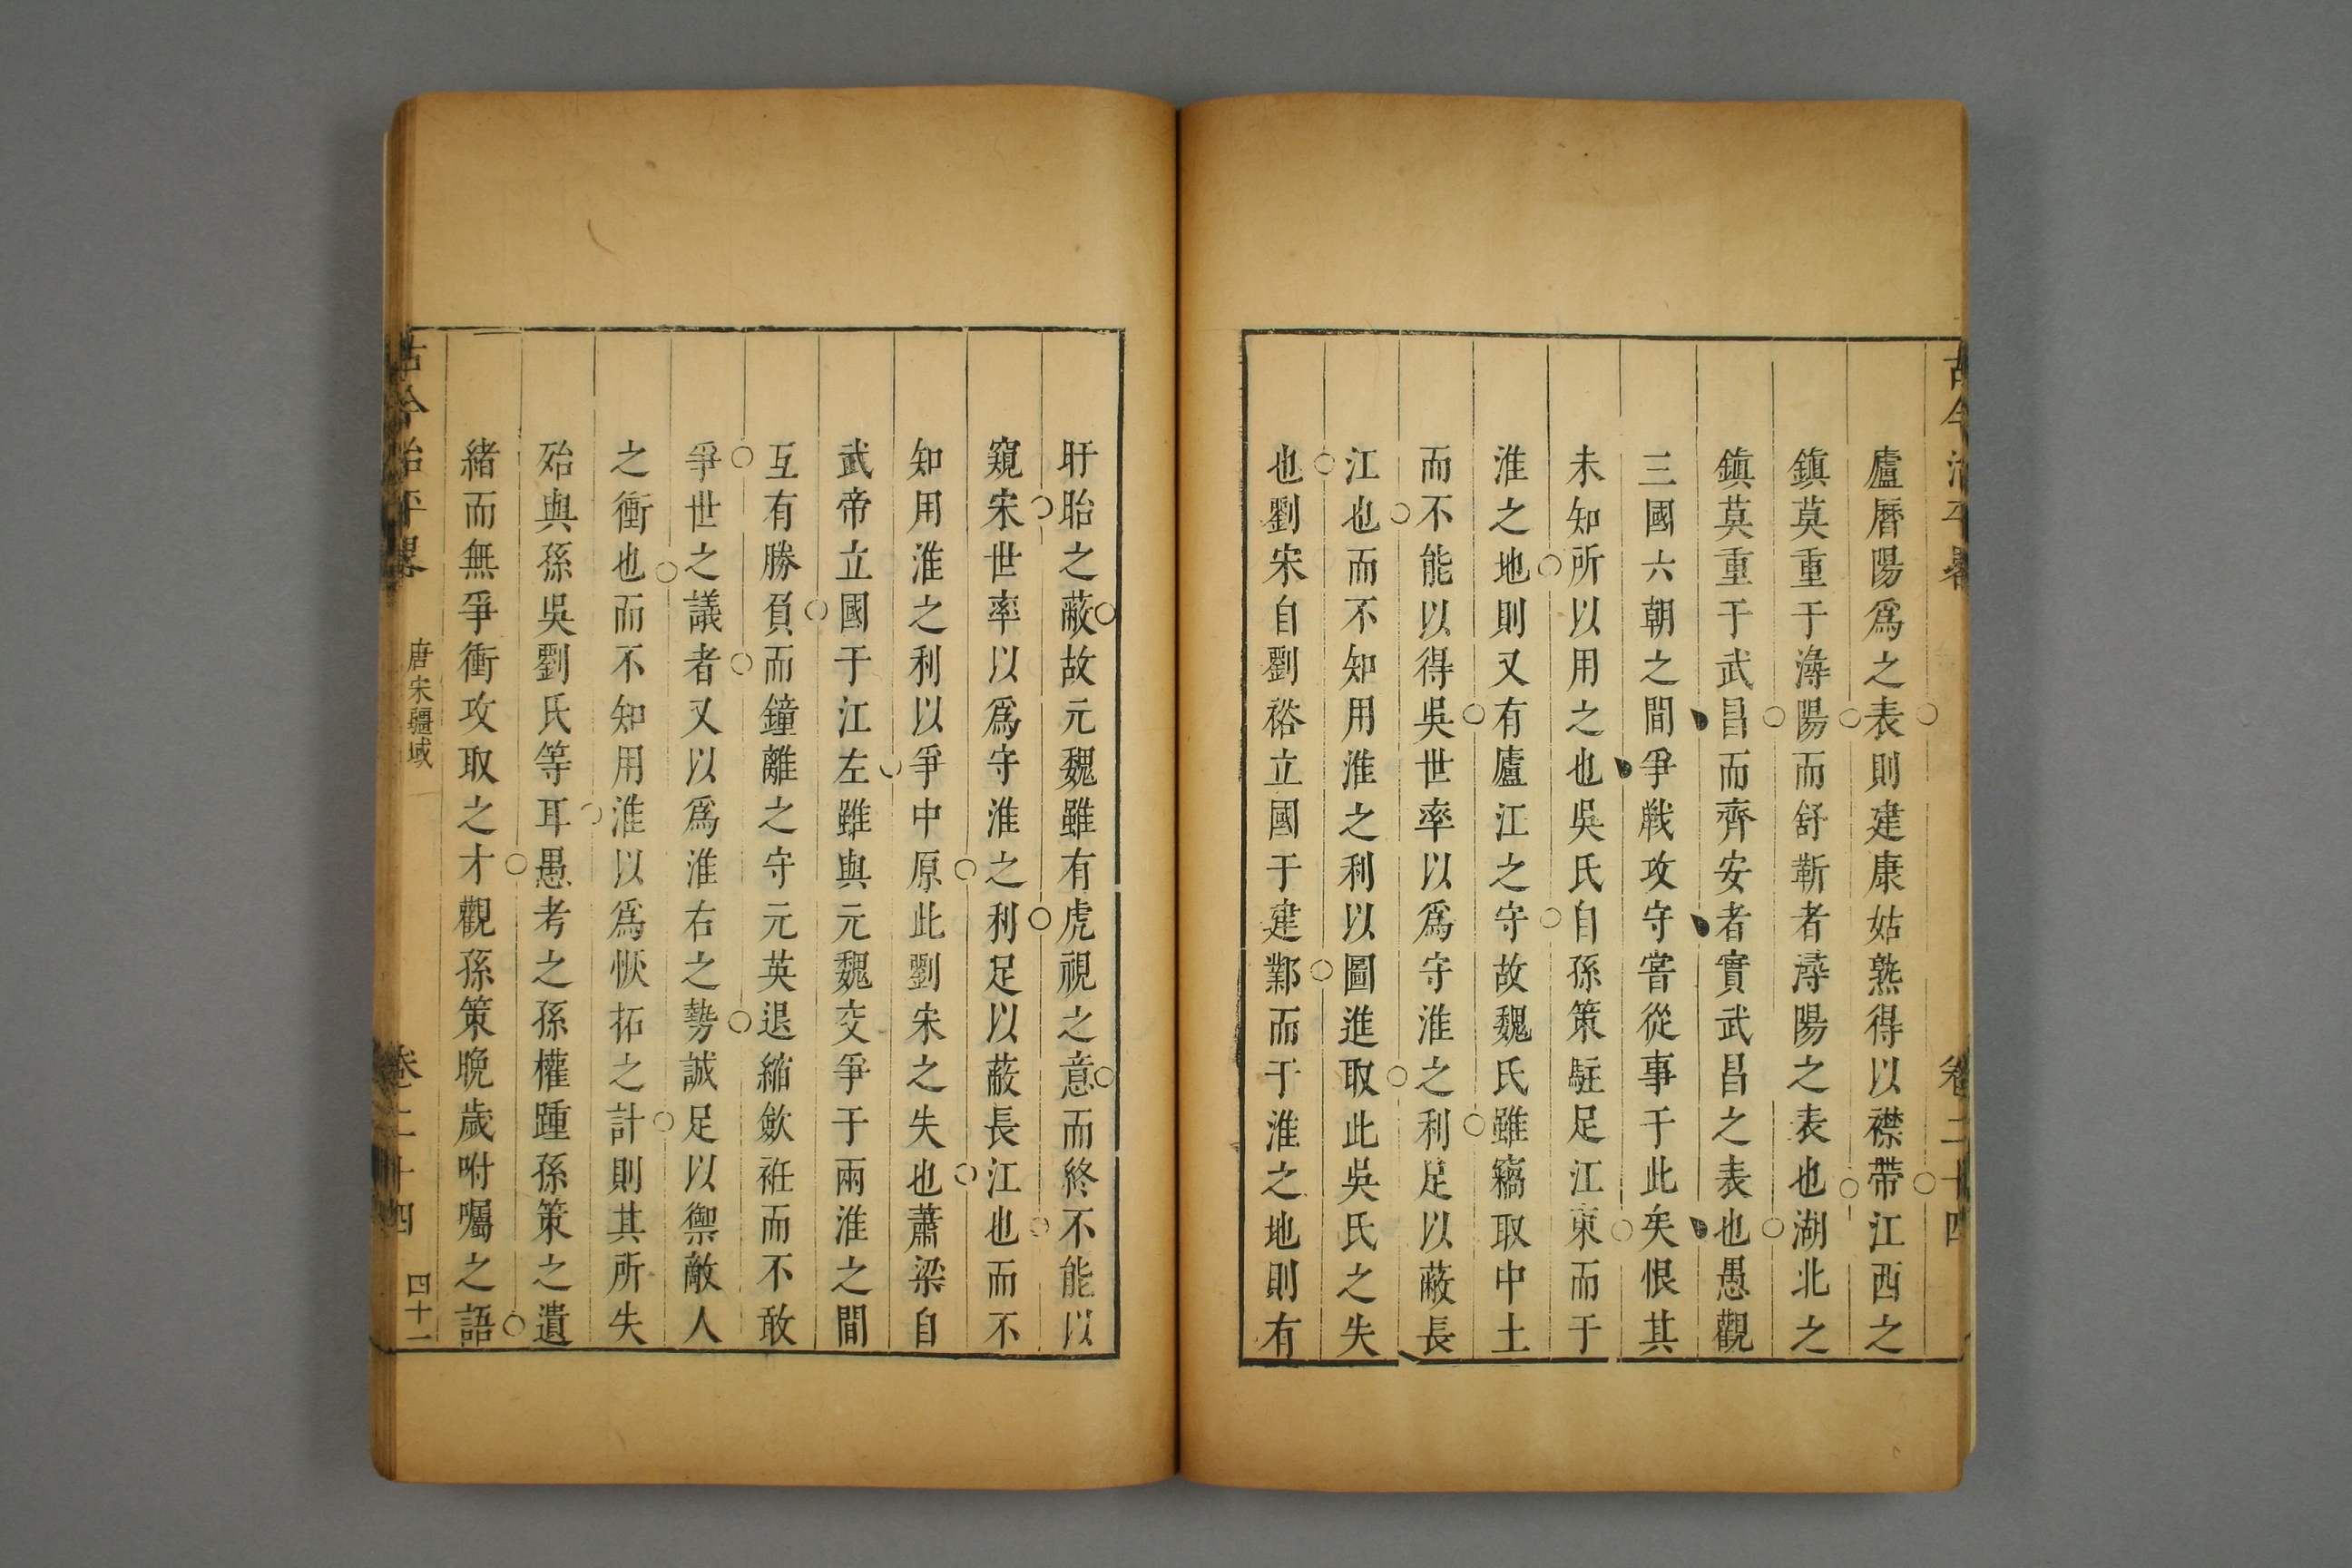 古今治平畧
卷二十四
廬曆陽爲之表則建康姑熟得以襟帶江西之
鎮莫重于潯陽而舒蘄者潯陽之表也湖北之
鎮莫重于武昌而齊安者實武昌之表也愚觀
三國六朝之間爭戰攻守嘗從事于此矣恨其
未知所以用之也吳氏自孫策駐足江東而于
淮之地則又有廬江之守故魏氏雖竊取中土
而不能以得吳世率以爲守淮之利足以蔽長
江也而不知用淮之利以圖進取此吳氏之失
也劉宋自劉裕立國于建鄴而于淮之地則有
盱眙之蔽故元魏雖有虎視之意而終不能以
窺宋世率以爲守淮之利足以蔽長江也而不
知用淮之利以爭中原此劉宋之失也蕭梁自
武帝立國于江左雖與元魏交爭于兩淮之間
互有勝負而鐘離之守元英退縮歛袵而不敢
爭世之議者又以爲淮右之勢誠足以禦敵人
之衝也而不知用淮以爲恢拓之計則其所失
殆與孫吳劉氏等耳愚考之孫權踵孫策之遺
緒而無爭衝攻取之才觀孫策晩歲咐囑之語
古今治平畧
唐宋疆域
卷二十四
四十一